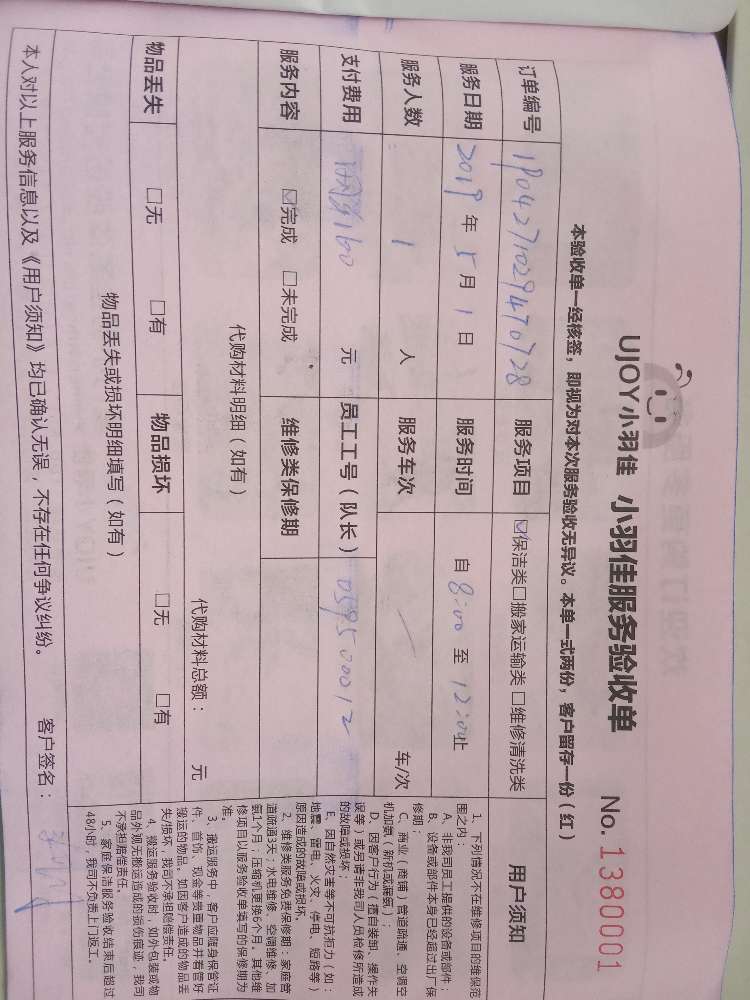 UJOY小羽佳 小羽佳服务验收单 No. 1380001
本验收单一经核签，即视为对本次服务验收无异议。本单一式两份，客户留存一份（红）
订单编号 1904271029470728 服务项目 ☑保洁类□搬家运输类□维修清洗类
服务日期 2019 年 5 月 1 日 服务时间 自 8:00 至 12:00止
服务人数 1 人 服务车次 车/次
支付费用 160 元 员工工号（队长） 059500012
服务内容 ☑完成 □未完成 维修类保修期
代购材料明细（如有）
代购材料总额： 元
物品丢失 □无 □有 物品损坏 □无 □有
物品丢失或损坏明细填写（如有）
本人对以上服务信息以及《用户须知》均已确认无误，不存在任何争议纠纷。 客户签名：
用户须知
1、下列情况不在维修项目的维保范
围之内：
A、非我司员工提供的设备或部件；
B、设备或部件本身已经超过出厂保
修期；
C、商业（商铺）管道疏通、空调空
机加氨（新机或漏氨）；
D、因客户行为（擅自装卸、操作失
误等）或另请非我司人员检修所造成
的故障或损坏；
E、因自然灾害等不可抗拒力（如：
地震、雷电、火灾、停电、短路等）
原因造成的故障或损坏。
2、维修类服务免费保修期：家庭管
道疏通3天；水电维修、空调维修、加
氨1个月；压缩机更换6个月。其他维
修项目以服务验收单填写的保修期为
准。
3、搬运服务中，客户应随身保管证
件、首饰、现金等贵重物品并看管好
搬运的物品。如因客户造成的物品丢
失/损坏，我司不承担赔偿责任。
4、搬运服务验收时，如外包装或物
品外观无搬运造成的损伤痕迹，我司
不承担赔偿责任。
5、家庭保洁服务验收结束后超过
48小时，我司不负责上门返工。